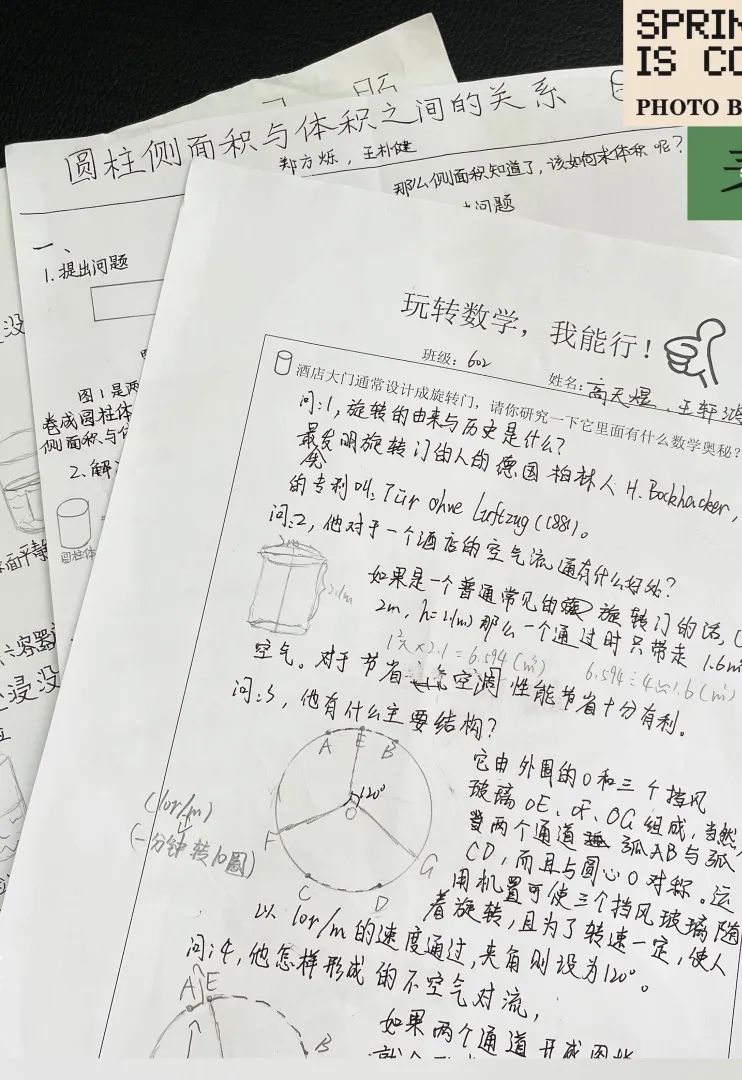 SPRIN
IS CO
PHOTO B
圆柱侧面积与体积之间的关系
郑方烁，王朴健
那么侧面积知道了，该如何求体积呢？
问题
一、
1.提出问题
图1是两
卷成圆柱体
侧面积与体
2.解
圆柱体
没
面平静
容器
浸没
玩转数学，我能行！
班级：602
姓名：高天煜、王轩鸿
酒店大门通常设计成旋转门，请你研究一下它里面有什么数学奥秘？
问：1，旋转的由来与历史是什么？
最先发明旋转门的人的德国柏林人H.Bockhacker，
的专利叫：Tür ohne Luftzug（1881）。
问：2，他对于一个酒店的空气流通有什么好处？
2m
2.1m
如果是一个普通常见的旋转门的话，（
2m，h=2.1(m)那么一个通过时只带走 1.6m³
1²×π×2.1=6.594（m³）
6.594÷4≈1.6（m³）
空气。对于节省空调性能节省十分有利。
问：3，他有什么主要结构？
A E B
120°
O
F
G
C D
它由外围的O和三个挡风
玻璃OE、OF、OG组成，当然，
两个通道弧AB与弧
CD，而且与圆心O对称。运
用机置可使三个挡风玻璃随
着旋转，且为了转速一定，使人
（10r/m）
（一分钟转10圈）
以10r/m的速度通过，夹角则设为120°。
问：4，他怎样形成的不空气对流，
A E
B
如果两个通道开成图